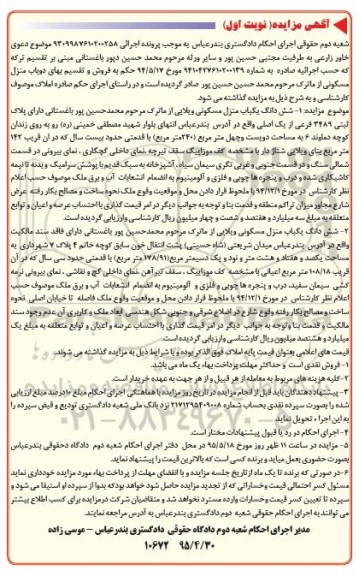 آگهی مزایده( نوبت اول)
شعبه دوم حقوقی اجرای احکام دادگستری بندرعباس به موجب پرونده اجرائی ۹۳۰۹۹۸۷۶۱۰۲۰۰۲۵۸ موضوع دعوی
خاور زارعی به طرفیت مجتبی حسین پور و سایر ورثه مرحوم محمد حسین دپور باغستانی مبنی بر تقسیم ترکه
که حسب اجرائیه صادره به شماره ۹۴۱۰۴۲۷۶۱۰۲۰۰۱۳۹ مورخ ۹۴/۵/۱۷ حکم به فروش و تقسیم بهای دوباب منزل
مسکونی از ماترک مرحوم محمد حسین حسین پور صادر گردیده است و در راستای اجرای حکم صادره املاک موصوف
کارشناسی و به شرح ذیل به مزایده گذاشته می شود.
موضوع مزایده: ۱- شش دانگ یکباب منزل مسکونی ویلایی از ماترک مرحوم محمدحسین پور باغستانی دارای پلاک
ثبتی ۳۴۸۹ فرعی از یک اصلی واقع در آدرس بندرعباس انتهای بلوار شهید مصطفی خمینی (ره) رو به روی زندان
کوچه دماوند ۶ به مساحت دویست وچهل متر مربع (۲۴۰متر مربع) با قدمتی حدود بیست سال که در آن قریب ۱۴۲
متر مربع بنای ویلایی شناژ دار با مشخصه کف موزاییک، سقف تیرچه، نمای داخلی گچکاری، نمای بیرونی در قسمت
شمالی سنگ و در قسمت جنوبی و غربی تگری سیمان ساده، آشپزخانه به سبک قدیم با پوشش سرامیک و بدنه تا نیمه
کاشیکاری شده و درب و پنجره ها چوبی و فلزی و آلومینیوم به انضمام انشعابات آب و برق ملک موصوف حسب اعلام
نظر کارشناس در مورخ ۹۴/۱۲/۱ با ملحوظ قرار دادن محل و موقعیت وقوع ملک نحوه ساخت و مصالح بکار رفته عرض
شارع مجاور میزان تراکم منطقه و قدمت بنا و توجه به جوانب دیگر در امر قیمت گذاری با احتساب عرصه و اعیان و توابع
متعلقه به مبلغ سه میلیارد و هفتصد و شصت و چهار میلیون ریال کارشناسی وارزیابی گردیده است.
۲- شش دانگ یکباب منزل مسکونی ویلایی از ماترک مرحوم محمدحسین پور باغستانی دارای فاقد سند مالکیت
واقع در آدرس بندرعباس میدان شریعتی (شاه حسینی) پشت انتقال خون سابق کوچه خانم ۴ پلاک ۷ شهرداری به
مساحت یکصد و هفتاد و هشت متر و نود و یک دسیمتر مربع(۱۷۸/۹۱متر مربع) با قدمتی حدود سی سال که در آن
قریب ۱۰۸/۱۸ متر مربع اعیانی با مشخصه کف موزاییک، سقف تیرآهن، نمای داخلی گچ و نقاشی، نمای بیرونی نرمه
کشی سیمان سفید، درب و پنجره ها چوبی و فلزی و آلومینیوم به انضمام انشعابات آب و برق ملک موصوف حسب
اعلام نظر کارشناس در مورخ ۹۴/۱۲/۱ با ملحوظ قرار دادن محل و موقعیت وقوع ملک فاصله تا خیابان اصلی نحوه
ساخت و مصالح بکار رفته وقوع شارع در اضلاع شرقی و جنوبی شکل هندسی ابعاد ملک و کاربری آن عدم وجود سند
مالکیت و قدمت بنا و توجه به جوانب دیگر در امر قیمت گذاری با احتساب عرصه و اعیان و توابع متعلقه به مبلغ یک
میلیارد و هشتصد میلیون ریال کارشناسی وارزیابی گردیده است.
قیمت های اعلامی بعنوان قیمت پایه املاک فوق الذکر بوده و با شرایط ذیل به مزایده گذاشته می شوند.
۱- فروش نقدی است و حداکثر مهلت پرداخت بهاء یک ماه می باشد.
۲- کلیه هزینه های مربوط به معامله از هر قبیل و از هر جهت به عهده خریدار است.
۳- پیشنهاددهندگان باید قبل از انجام مزایده در تاریخ روز مزایده با هماهنگی اجرای احکام مبلغ ۱۰درصد مبلغ ارزیابی
شده را بصورت سپرده نقدی بحساب شماره ۲۱۷۱۲۹۵۴۰۹۰۰۸ نزد بانک ملی شعبه دادگستری تودیع و قبض سپرده را
به این اجراء تحویل نماید.
۴- اجرای احکام در رد یا قبول پیشنهادات مختار است.
۵- مزایده در ساعت ۱۱ ظهر روز مورخ ۹۵/۵/۱۸ در محل دفتر اجرای احکام شعبه دوم دادگاه دحقوقی بندرعباس
بصورت حضوری بعمل میآید و برنده کسی است که بالاترین قیمت را پیشنهاد نماید.
۶-در صورتی که برنده تا یک ماه ازتاریخ جلسه مزایده و یا انقضای مهلت از پرداخت بهاء مورد مزایده خودداری نماید
مسئول کسر احتمالی قیمت وخساراتی که از تجدید مزایده حاصل شود خواهد بودکه بدوا از سپرده او استیفا می شود و
سپرده تا تعیین کسر قیمت وخسارات وارده مسترد نخواهد شد و متقاضیان شرکت درمزایده برای کسب اطلاع بیشتر
می توانند به اجرای احکام حقوقی شعبه دوم دادگستری بندرعباس به آدرس مراجعه نمایند.
مدیر اجرای احکام شعبه دوم دادگاه حقوقی دادگستری بندرعباس – موسی زاده
۹۵/۴/۳۰ ۱۰۶۷۲